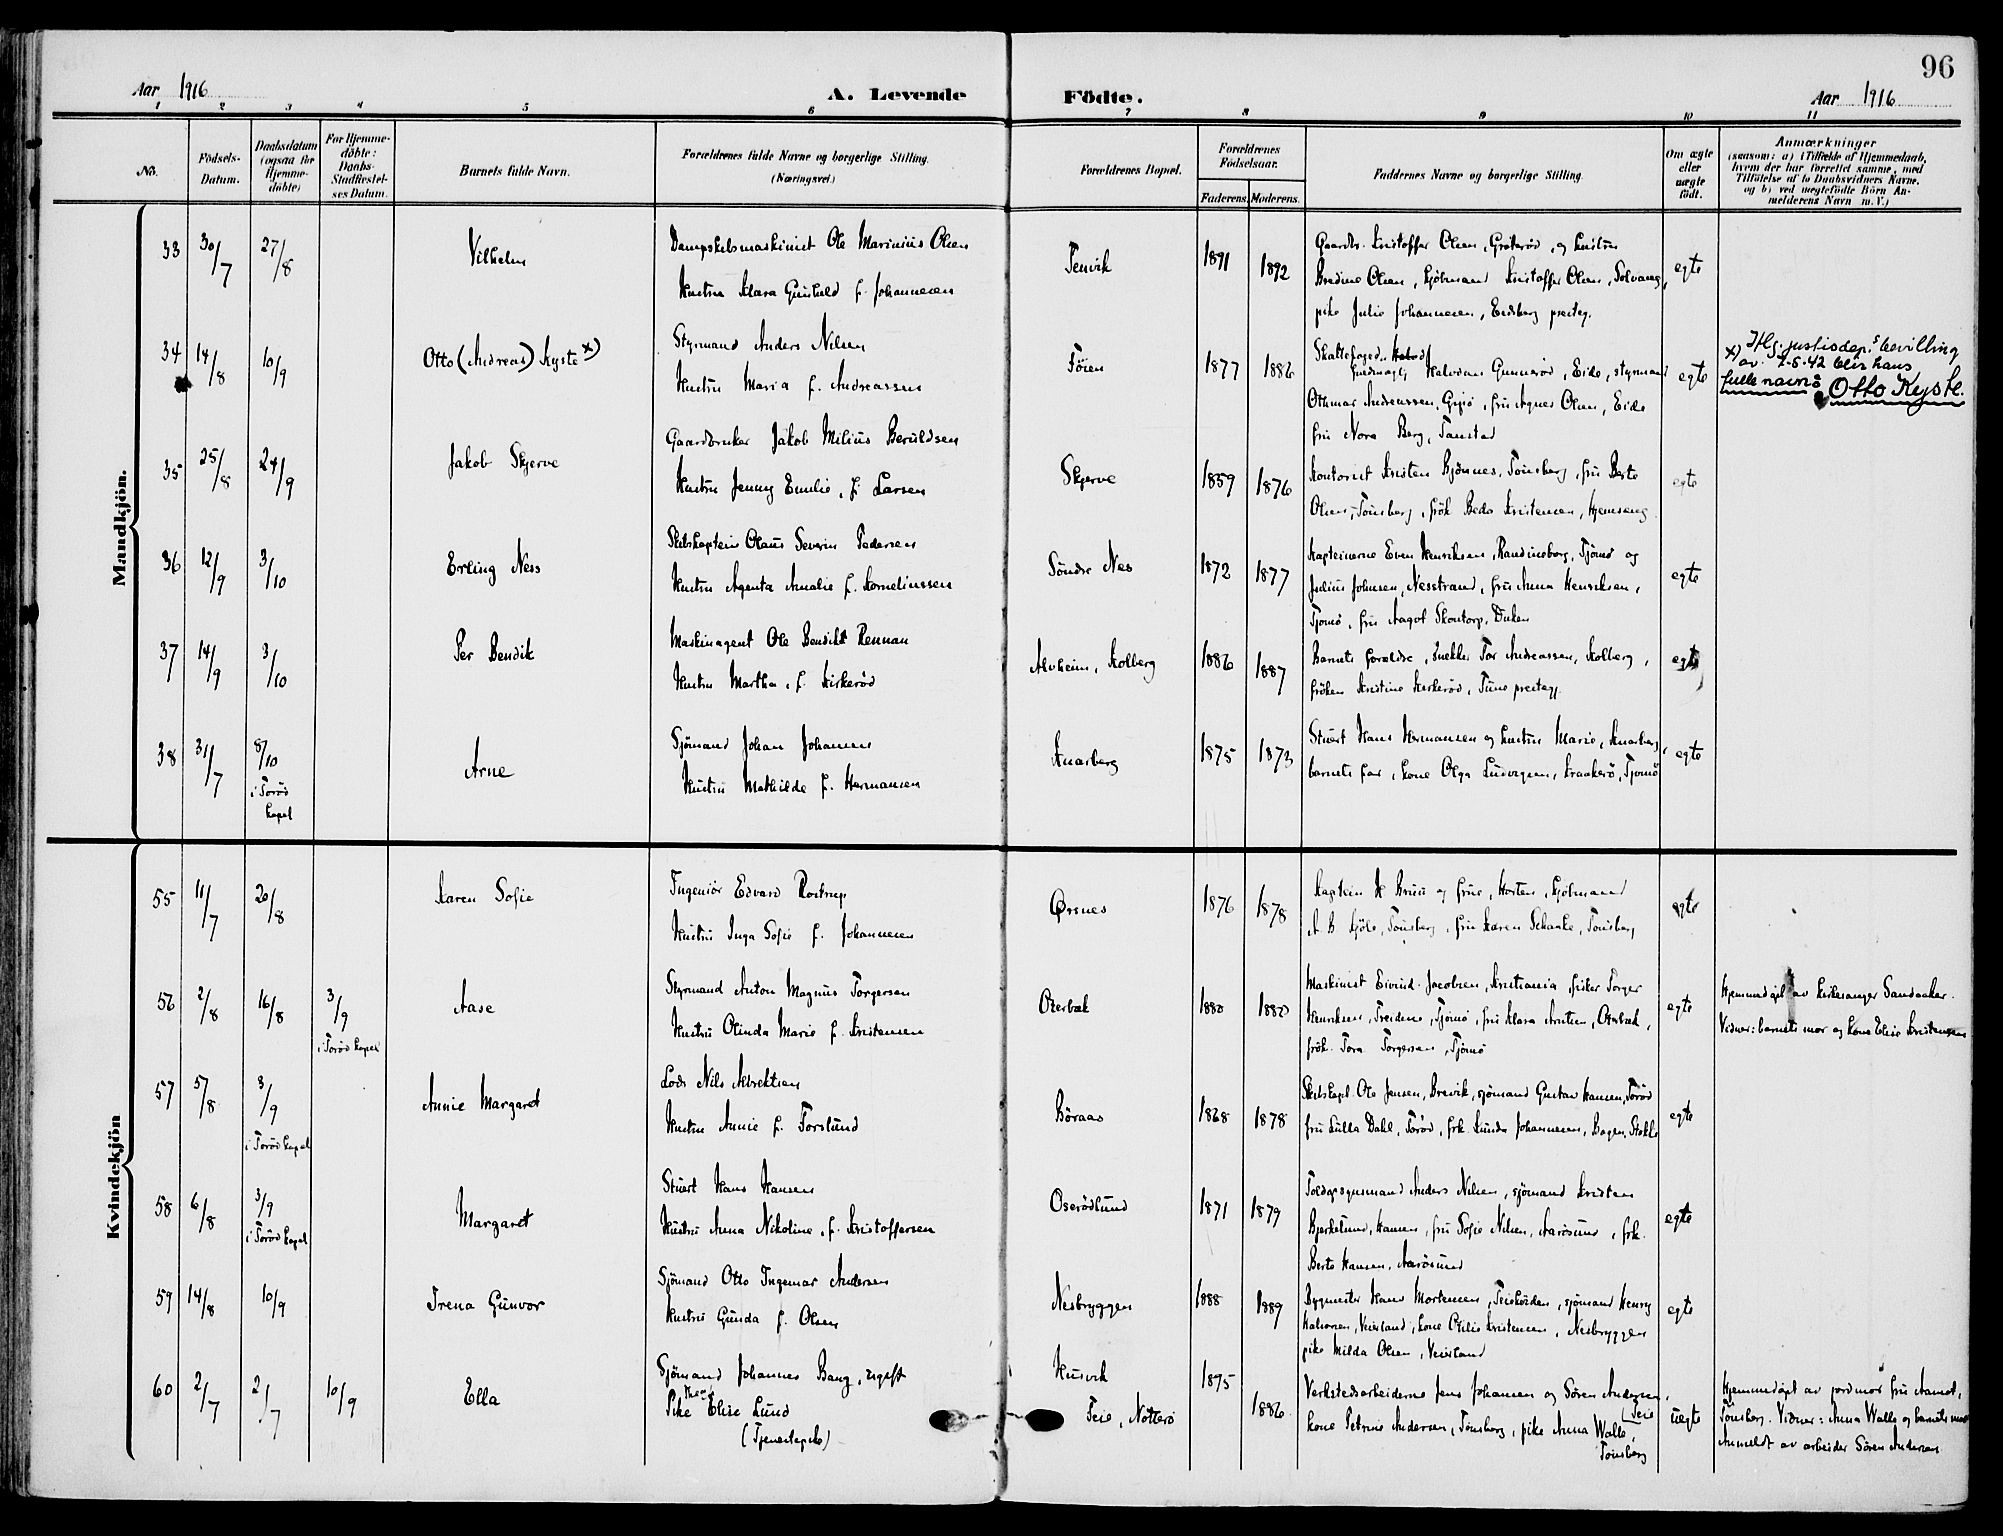 96
Aar 1916 A. Levende Födte. Aar 1916
1 2 3 4 5 6 7 8 9 10 11
No.
Födsels-
Datum.
Daabsdatum
(ogsaa for
Hjemme-
döbte)
For Hjemme-
döbte:
Daabs-
Stadfæstel-
ses Datum.
Barnets fulde Navn.
Forældrenes fulde Navne og borgerlige Stilling.
(Næringsvei.)
Forældrenes Bopæl.
Forældrenes
Födselsaar.
Faderens. Moderens.
Faddernes Navne og borgerlige Stilling.
Om ægte
eller
uægte
födt.
Anmærkninger
(saasom: a) i Tilfælde af Hjemmedaab,
hvem der har forrettet samme, med
Tilföielse af to Daabsvidners Navne,
og b) ved uægtefödte Börn An-
melderens Navn m. V.)
Mandkjön.
33 30/7 27/8 Vilhelm
Dampskibsmaskinist Ole Marinius Olsen
Hustru Klara Gunhild f. Johannesen
Tenvik 1891 1892
Gaardbr. Kristoffer Olsen, Gröterød, og hustru
Bredine Olsen, Kjöbmand Kristoffer Olsen, Solvang,
pike Julie Johannesen, Eidsberg prestg.
egte
34 14/8 10/9 Otto (Andreas) Kyste x)
Styrmand Anders Nilsen
Hustru Maria f. Andreassen
Föien 1877 1886
Skattefoged
fuldmægt. Halvdan Gunnerød, Eide, styrmand
Othmar Andreassen, fru Agnes Olsen, Eide
fru Nora Berg, Tanstad
egte
x) Iflg. justisdep.s bevilling
av 2-5-42 blir hans
fulle navn: Otto Kyste.
35 25/8 24/9 Jakob Skjerve
Gaardbruker Jakob Milius Beruldsen
Hustru Jenny Emilie, f. Larsen
Skjerve 1859 1876
Kontorist Kristen Bjönnes, Tönsberg, fru Berte
Olsen, Tönsberg, frök Beda Kristensen, Hjemseng
egte
36 12/9 3/10 Erling Ness
Skibskaptein Olaus Severin Pedersen
Hustru Agenta Amalie f. Korneliussen
Söndre Nes 1872 1877
Kapteinerne Even Henriksen, Randineborg, Tjömö og
Julius Johnsen, Nesstrand, fru Anna Henriksen,
Tjömö, fru Aagot Skontorp, Duken
egte
37 14/9 3/10 Per Bendik
Maskinagent Ole Bendikt Rennan
Hustru Martha, f. Kirkerød
Alvheim, Kolberg 1886 1887
Barnets forældre, snekker Tor Andreassen, Kolberg,
fröken Kristine Kirkerød, Tune prestegj.
egte
38 31/7 8/10
i Torød
kapel
Arne
Sjömand Johan Johansen
Hustru Mathilde f. Hermansen
Knarberg 1875 1873
Stuert Hans Hermansen og hustru Marie, Knarberg,
barnets far, kone Olga Ludvigsen, Kraakerö, Tjømö
egte
Kvindekjön
55 11/7 20/8 Karen Sofie
Ingeniör Edvard Rostrup
Hustru Inga Sofie f. Johannesen
Ørsnes 1876 1878
Kaptein K Bruu og frue, Horten, Kjöbmand
Tönsberg, fru Karen Schanke, Tönsberg
egte
56 2/8 16/8 3/9
i Torød kapel
Aase
Styrmand Anton Magnus Torgersen
Hustru Olinda Marie f. Kristensen
Oterbæk 1880 1880
Maskinist Eivind Jacobsen, Kristiania, fisker Torger
Henriksen, Treidene, Tjömö, fru Klara Arntsen, Oterbæk,
frök. Tora Torgersen, Tjömö
egte
Hjemmedöpt av kirkesanger Sandaaker.
Vidner: barnets mor og kone Elise Kristensen
57 5/8 3/9
i Torød kapel
Annie Margaret
Lods Nils Alvektsen
Hustru Annie f. Forslund
Böraas 1868 1878
Skibskapt. Ole Jensen, Brevik, sjömand Gustav Hansen, Torød
fru Lulla Dahl, Torød, frk. Gunda Johannesen, Bogen, Stokke
egte
58 6/8 3/9
i Torød kapel
Margaret
Stuert Hans Hansen
Hustru Anna Nikoline, f. Kristoffersen
Oserödlund 1871 1879
Toldopsynsmand Anders Nilsen, sjömand Kristen
Bjerkelund, Hansen, fru Sofie Nilsen, Aarösund, frk.
Berte Hansen, Aarösund
egte
59 14/8 10/9 Irena Gunvor
Sjömand Otto Ingemar Andersen
Hustru Gunda f. Olsen
Nesbryggen 1888 1889
Bygmester Hans Mortensen, Teieskoden, sjömand Henry
Halvorsen, Veierland, kone Otilie Kristensen, Nesbryggen
pike Milda Olsen, Veierland
egte
60 2/7 2/7 10/9 Ella
Sjömand Johannes Bang, ugift
Pike Thea Elise Lund
(Tjenestepike)
Husvik 1875
Teie, Nötterö 1886
Verkstedsarbeiderne Jens Johansen og Sören Andersen,
(Teie
kone Petrine Andersen, Tönsberg, pike Anna Walle,
Tönsberg
uegte
Hjemmedöpt av jordmor fru Aamot,
Tönsberg. Vidner: Anna Walle og barnets mor
Anmeldt av arbeider Sören Andersen